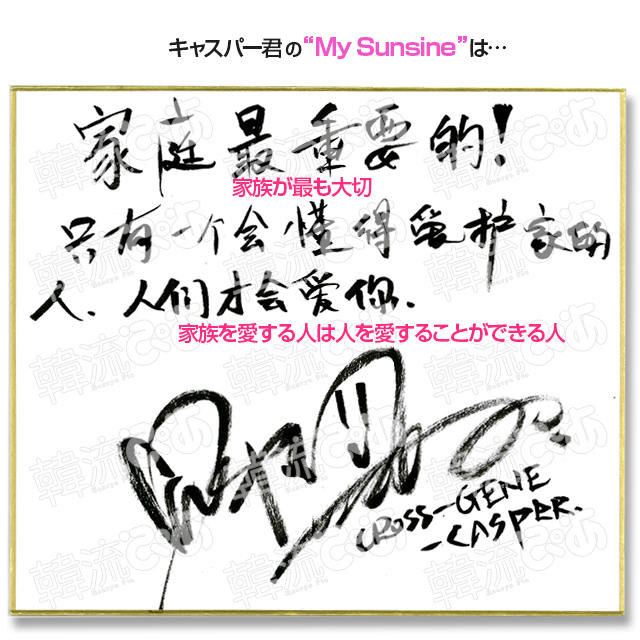 キャスパー君の“My Sunsine”は…
家庭最重要的!
家族が最も大切
只有一个会懂得爱护家的
人、人们才会爱你.
家族を愛する人は人を愛することができる人
CROSS-GENE
-CASPER.
韓流ぴあ
Hanryu Pia